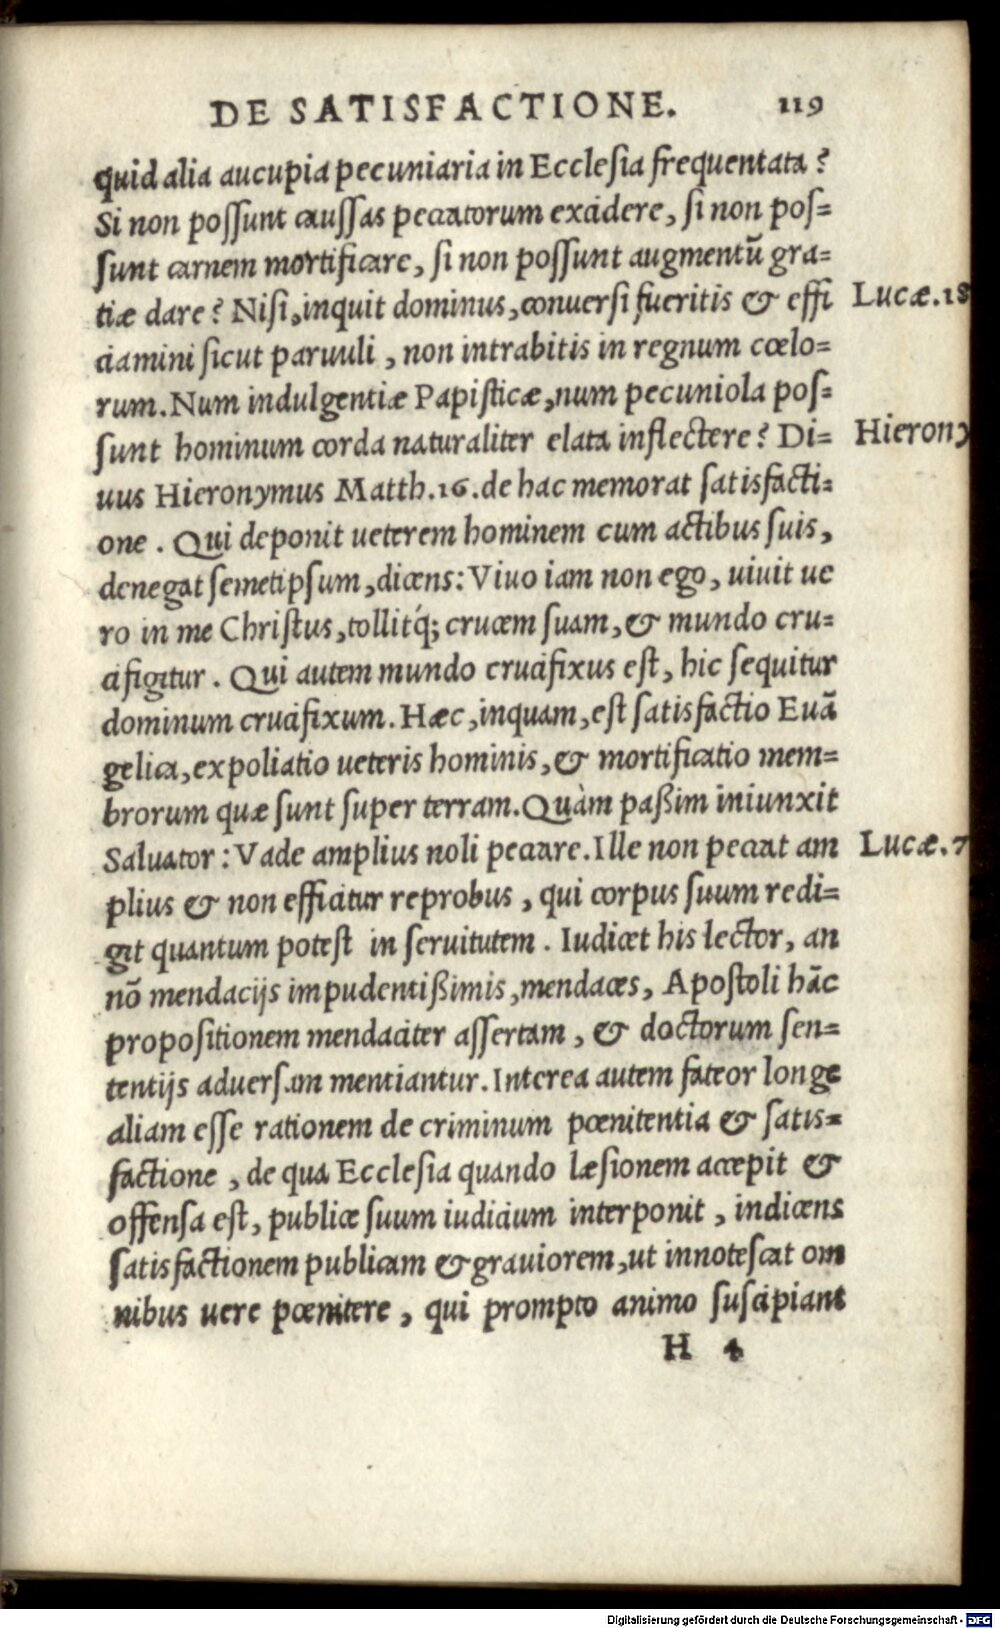 DE SATISFACTIONE. 119
quid alia aucupia pecuniaria in Ecclesia frequentata?
Si non possunt caussas peccatorum excidere, si non pos=
sunt carnem mortificare, si non possunt augmentū gra=
tiæ dare? Nisi, inquit dominus, conuersi fueritis & effi
Lucæ. 18
ciamini sicut paruuli, non intrabitis in regnum cœlo=
rum. Num indulgentiæ Papisticæ, num pecuniola pos=
sunt hominum corda naturaliter elata inflectere? Di=
Hierony
uus Hieronymus Matth. 16. de hac memorat satisfacti=
one. Qui deponit ueterem hominem cum actibus suis,
denegat semetipsum, dicens: Viuo iam non ego, uiuit ue
ro in me Christus, tollitq́; crucem suam, & mundo cru=
cifigitur. Qui autem mundo crucifixus est, hic sequitur
dominum crucifixum. Hæc, inquam, est satisfactio Euā
gelica, expoliatio ueteris hominis, & mortificatio mem=
brorum quæ sunt super terram. Quàm paßim iniunxit
Saluator: Vade amplius noli peccare. Ille non peccat am
Lucæ. 7
plius & non efficitur reprobus, qui corpus suum redi=
git quantum potest in seruitutem. Iudicet his lector, an
nō mendacijs impudentißimis, mendaces, Apostoli hāc
propositionem mendaciter assertam, & doctorum sen=
tentijs aduersam mentiantur. Interea autem fateor longe
aliam esse rationem de criminum pœnitentia & satis=
factione, de qua Ecclesia quando læsionem accepit &
offensa est, publice suum iudicium interponit, indicens
satisfactionem publicam & grauiorem, ut innotescat om
nibus uere pœnitere, qui prompto animo suscipiant
H 4
Digitalisierung gefördert durch die Deutsche Forschungsgemeinschaft - DFG